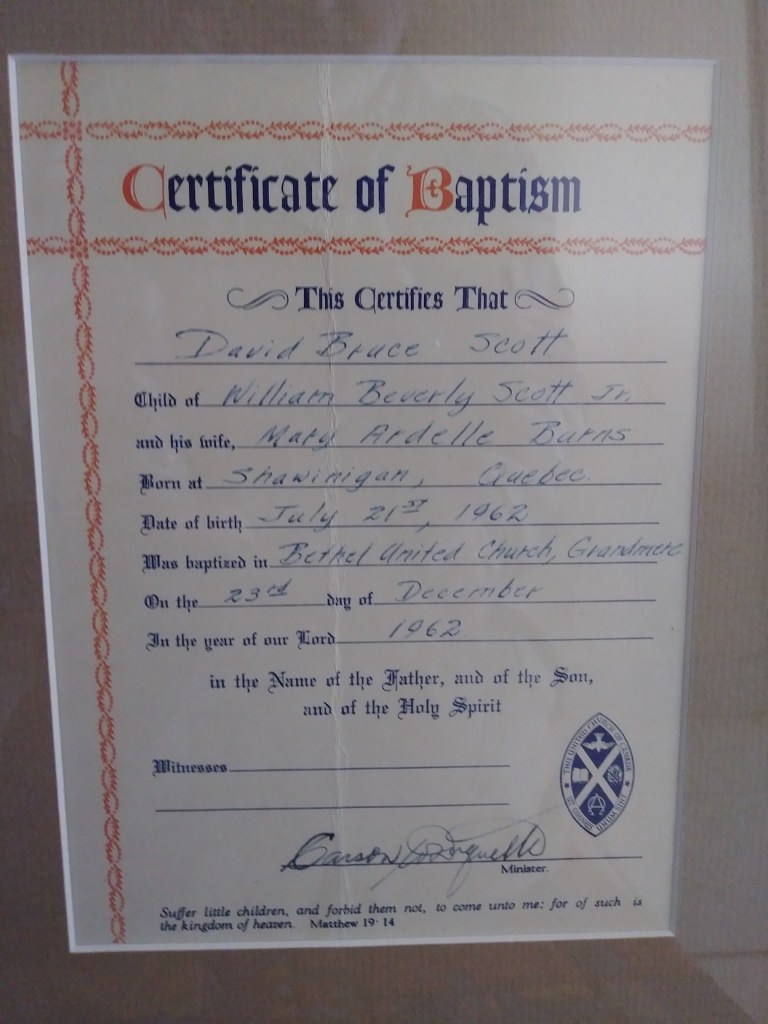 Certificate of Baptism
This Certifies That
David Bruce Scott
Child of William Beverly Scott Jr.
and his wife, Mary Ardelle Burns
Born at Shawinigan, Quebec.
Date of birth July 21st, 1962
Was baptized in Bethel United Church, Grandmere
On the 23rd day of December
In the year of our Lord 1962
in the Name of the Father, and of the Son,
and of the Holy Spirit
Witnesses
THE UNITED CHURCH OF CANADA
UT OMNES UNUM SINT
Carson
Minister.
Suffer little children, and forbid them not, to come unto me: for of such is
the kingdom of heaven. Matthew 19·14